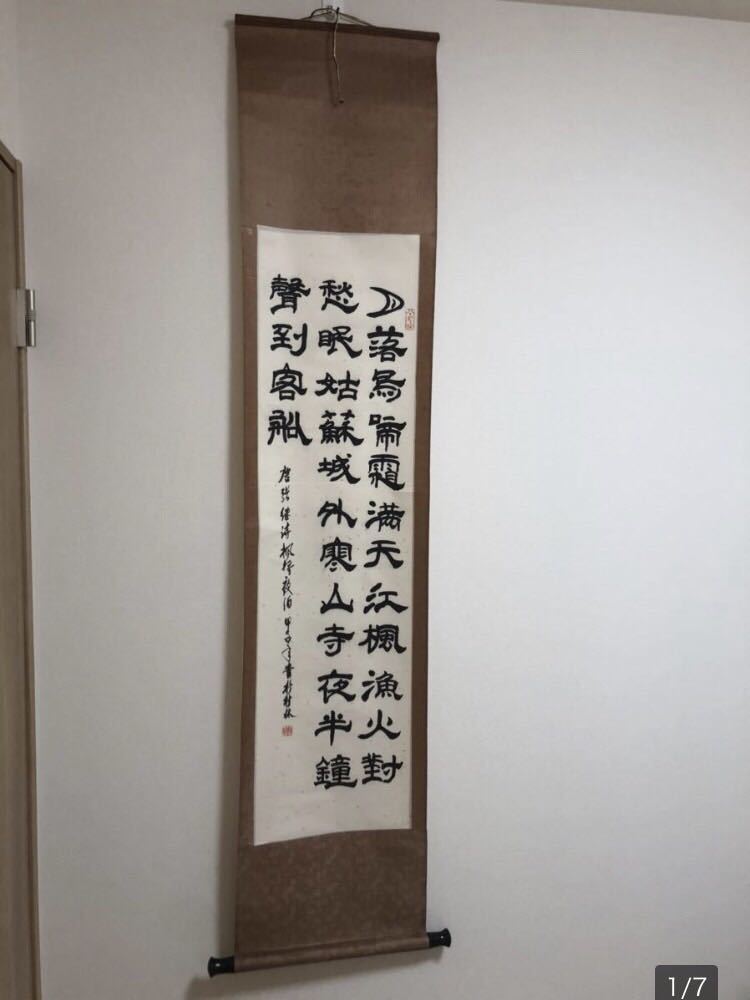 月落烏啼霜满天江楓漁火對
愁眠姑蘇城外寒山寺夜半鐘
聲到客船
唐張继诗楓橋夜泊甲
1/7